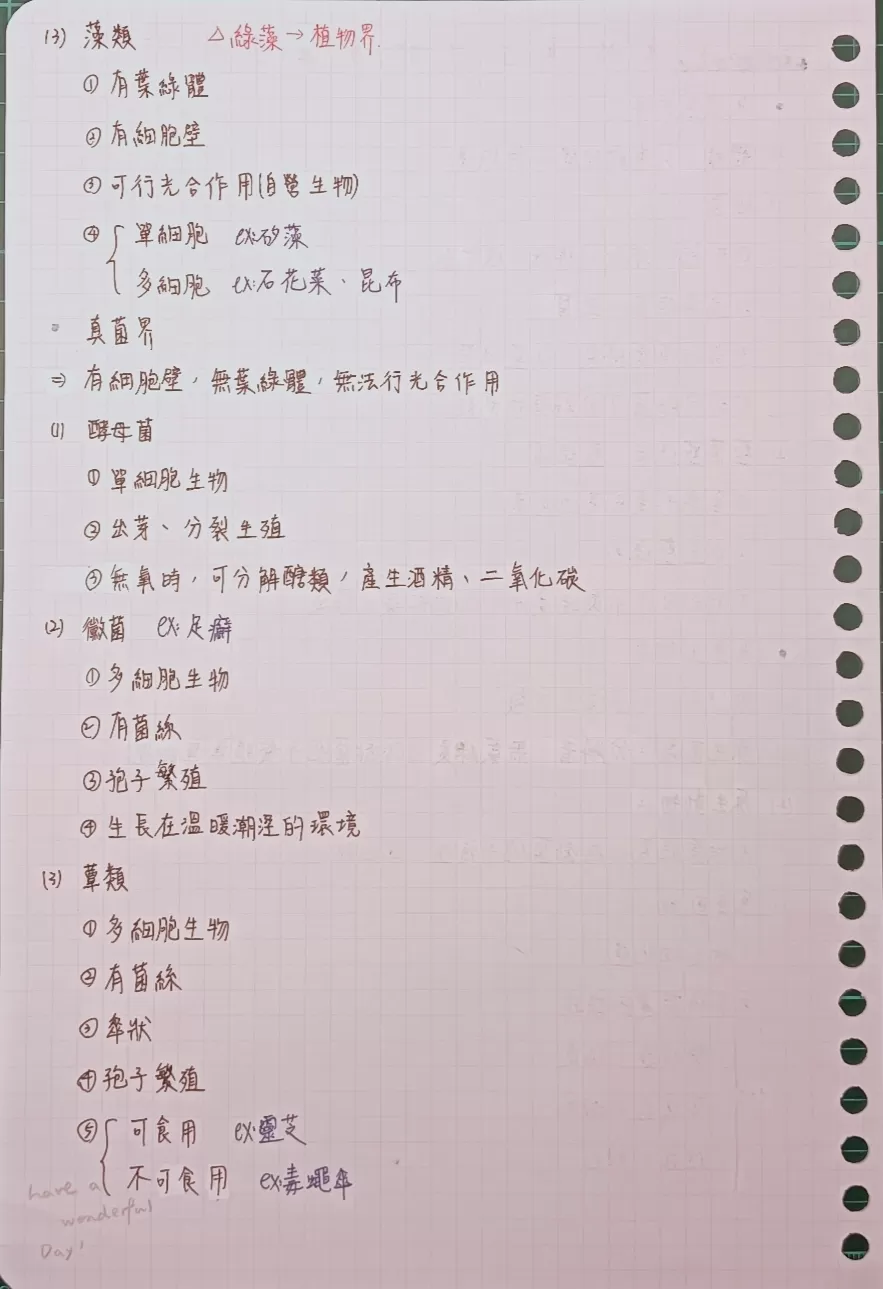 (3) 藻類 △綠藻→植物界.
① 有葉綠體
② 有細胞壁
③ 可行光合作用(自營生物)
④ { 單細胞 ex:矽藻
多細胞 ex:石花菜、昆布
真菌界
⇒ 有細胞壁，無葉綠體，無法行光合作用
(1) 酵母菌
① 單細胞生物
② 出芽、分裂生殖
③ 無氧時，可分解醣類，產生酒精、二氧化碳
(2) 黴菌 ex:足癬
① 多細胞生物
② 有菌絲
③ 孢子繁殖
④ 生長在溫暖潮溼的環境
(3) 蕈類
① 多細胞生物
② 有菌絲
③ 傘狀
④ 孢子繁殖
⑤ { 可食用 ex:靈芝
不可食用 ex:毒蠅傘
have a
wonderful
Day!